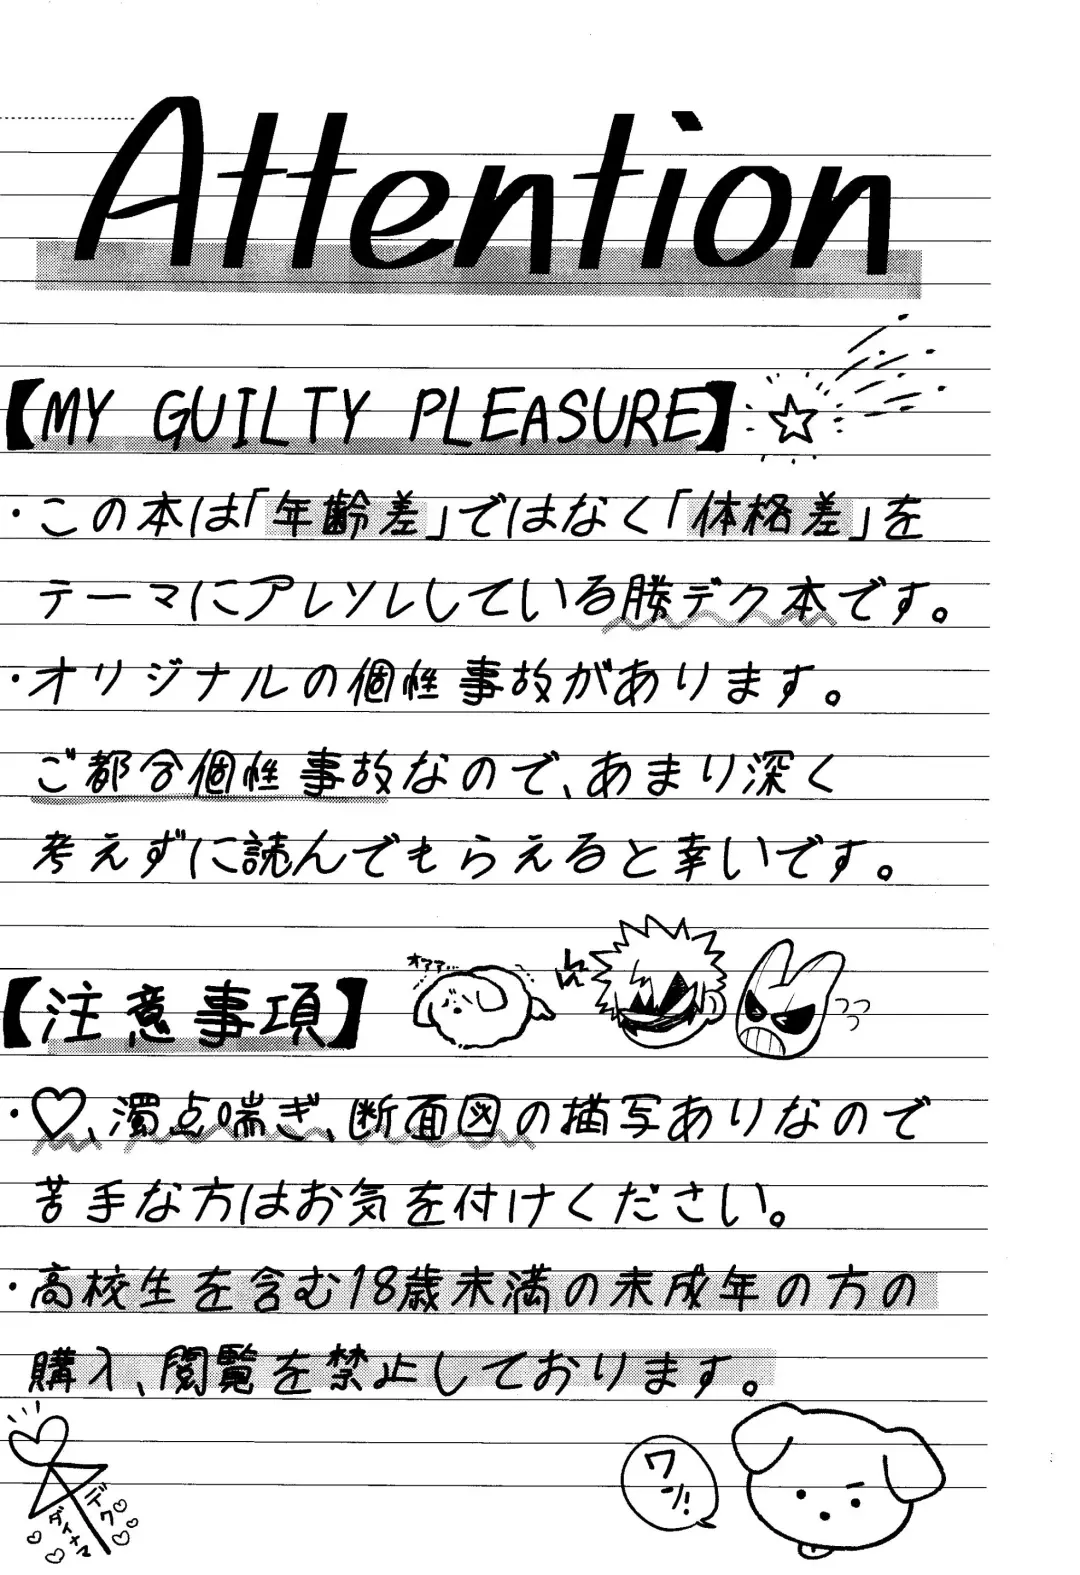 Attention
【MY GUILTY PLEASURE】
・この本は「年齢差」ではなく「体格差」を
テーマにアレソレしている勝デク本です。
・オリジナルの個性事故があります。
ご都合個性事故なので、あまり深く
考えずに読んでもらえると幸いです。
【注意事項】
オアアア…
・♡、濁点喘ぎ、断面図の描写ありなので
苦手な方はお気を付けください。
・高校生を含む18歳未満の未成年の方の
購入、閲覧を禁止しております。
デク
ダイナマ
ワン!